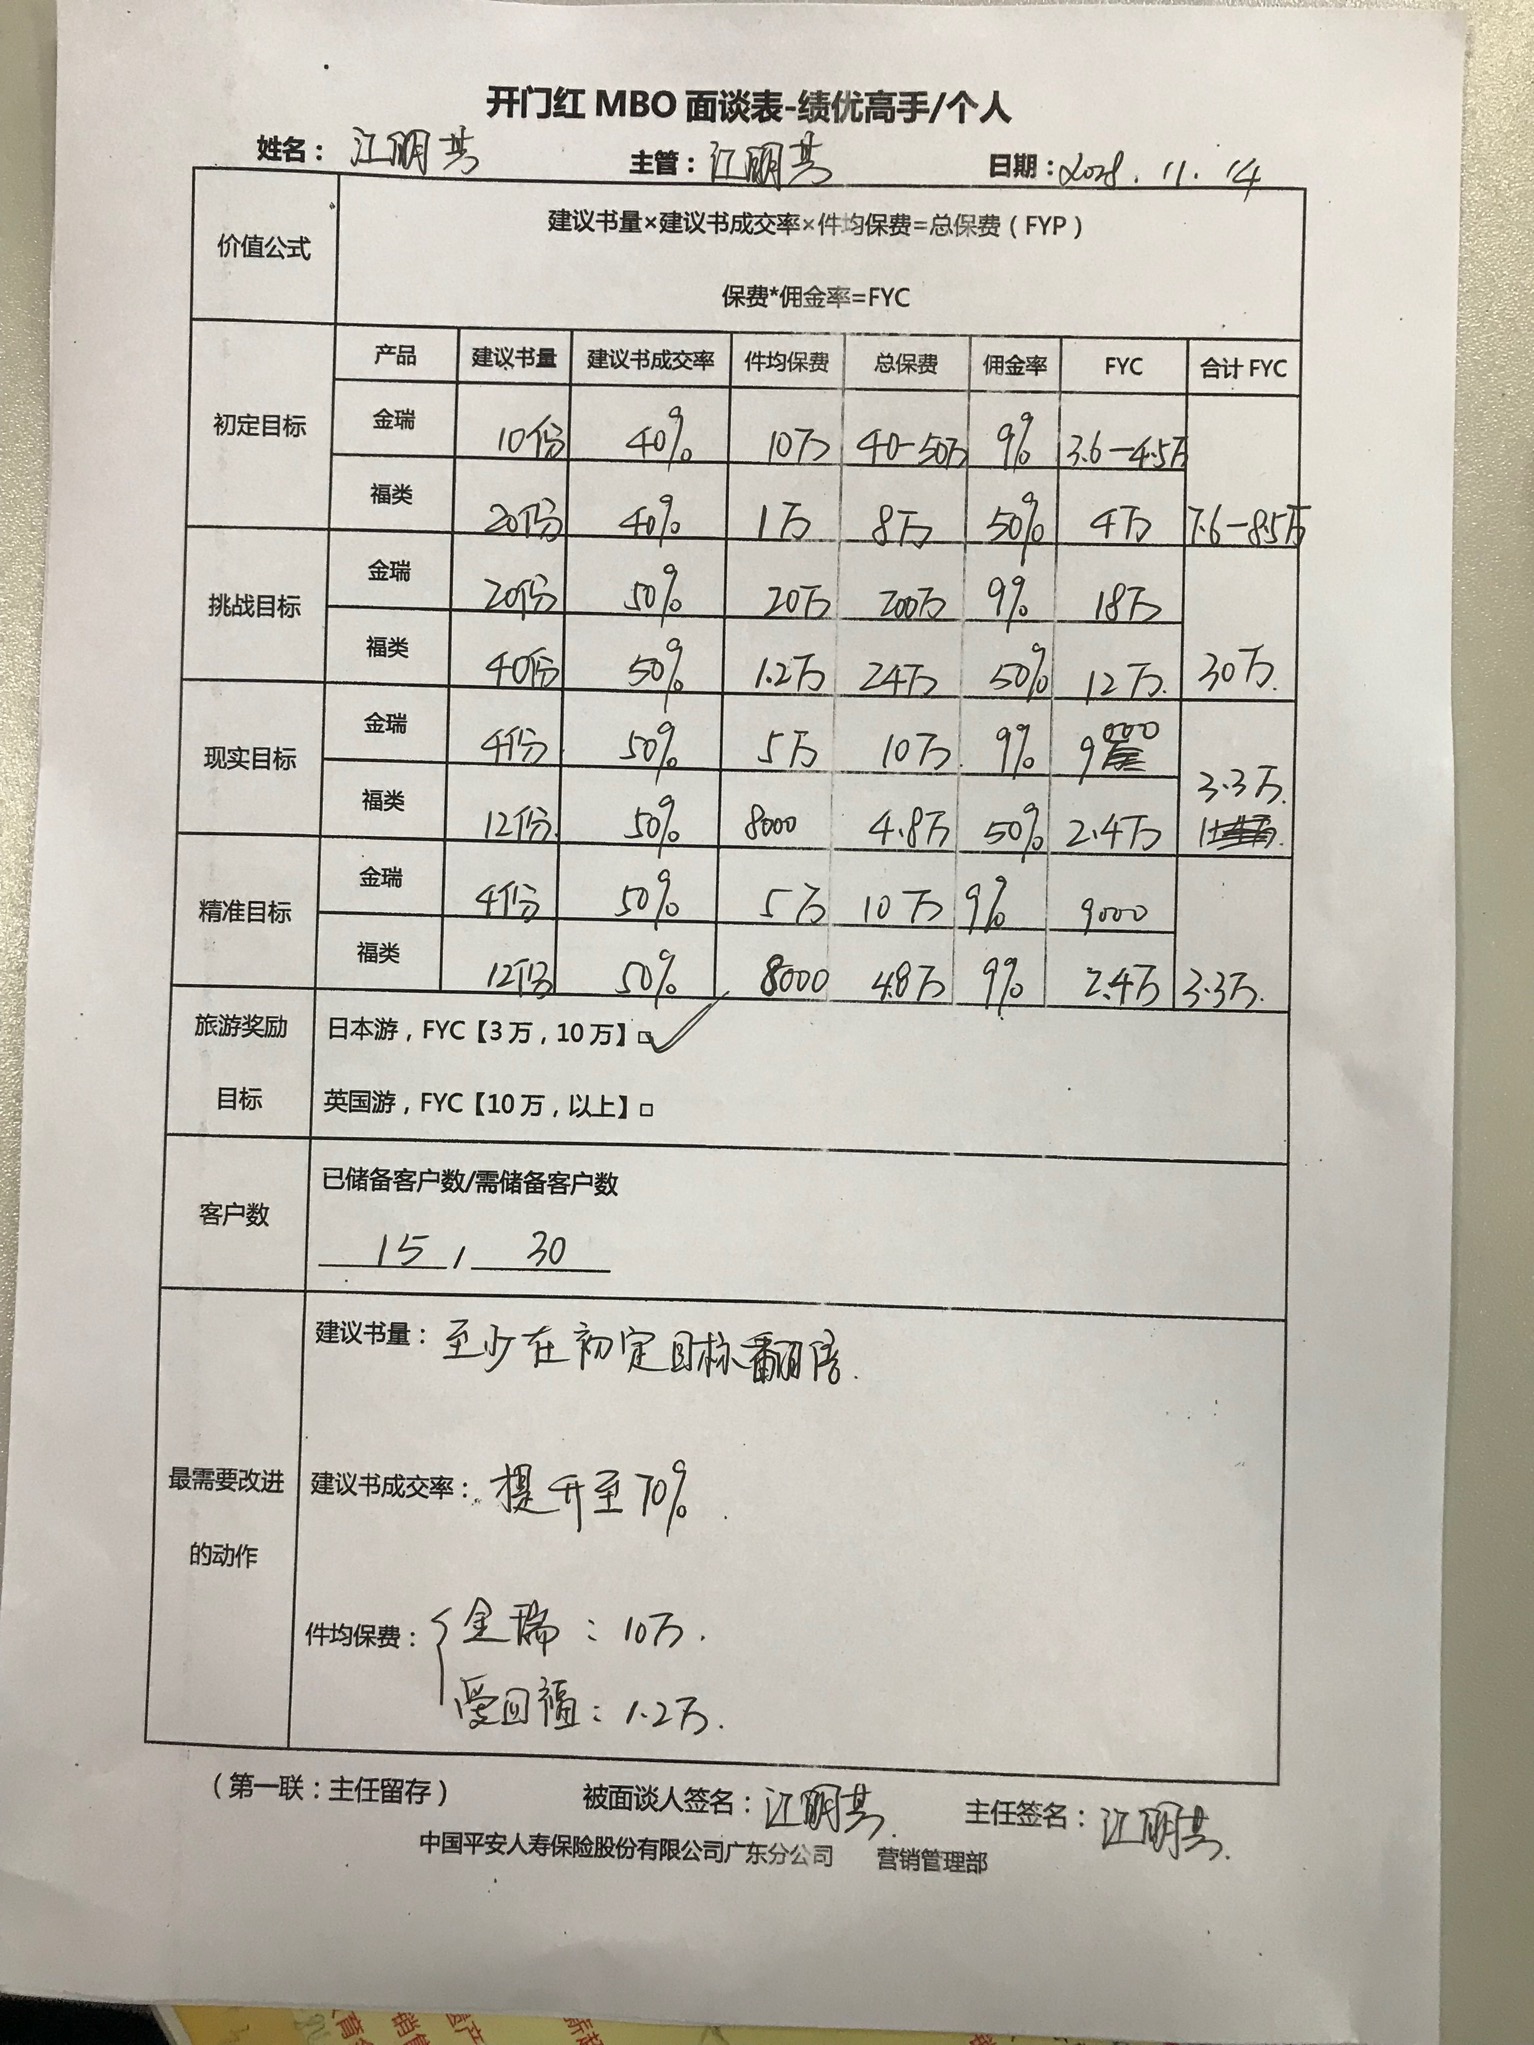 开门红 MBO 面谈表-绩优高手/个人
姓名：江明其 主管：江明其 日期：2028.11.14
价值公式
建议书量×建议书成交率×件均保费=总保费（FYP）
保费*佣金率=FYC
产品 建议书量 建议书成交率 件均保费 总保费 佣金率 FYC 合计 FYC
初定目标
金瑞 10份 40% 10万 40-50万 9% 3.6-4.5万
福类 20份 40% 1万 8万 50% 4万 7.6-8.5万
挑战目标
金瑞 20份 50% 20万 200万 9% 18万
福类 40份 50% 1.2万 24万 50% 12万. 30万.
现实目标
金瑞 4份 50% 5万 10万. 9% 9000
福类 12份. 50% 8000 4.8万 50% 2.4万 3.3万.
精准目标
金瑞 4份 50% 5万 10万 9% 9000
福类 12份 50% 8000 4.8万 9% 2.4万 3.3万.
旅游奖励
目标
日本游，FYC【3万，10万】□✓
英国游，FYC【10万，以上】□
客户数
已储备客户数/需储备客户数
15 / 30
最需要改进
的动作
建议书量：至少在初定目标翻倍.
建议书成交率：提升至70%.
件均保费：{金瑞：10万.
爱回福：1.2万.
（第一联：主任留存） 被面谈人签名：江明其. 主任签名：江明其.
中国平安人寿保险股份有限公司广东分公司 营销管理部